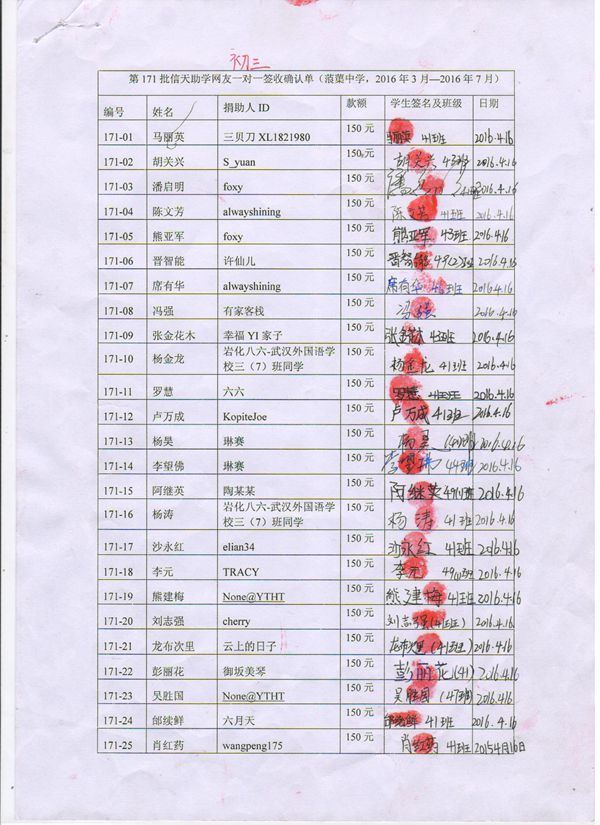 初三
第 171 批信天助学网友一对一签收确认单（蒗蕖中学，2016 年 3 月—2016 年 7 月）
编号 姓名 捐助人 ID 款额 学生签名及班级 日期
171-01 马丽英 三贝刀 XL1821980 150 元 马丽英 41班 2016.4.16
171-02 胡关兴 S_yuan 150 元 胡关兴 43班 2016.4.16
171-03 潘启明 foxy 150 元 潘 2016.4.16
171-04 陈文芳 alwayshining 150 元 陈文芳 41班 2016.4.16
171-05 熊亚军 foxy 150 元 熊亚军 43班 2016.4.16
171-06 晋智能 许仙儿 150 元 晋智能 49(2)班 2016.4.16
171-07 席有华 alwayshining 150 元 席有华 班 2016.4.16
171-08 冯强 有家客栈 150 元 冯强 2016.4.16
171-09 张金花木 幸福 YI 家子 150 元 张金花木 43班 2016.4.16
171-10 杨金龙 岩化八六-武汉外国语学 150 元 杨金龙 41班 2016.4.16
校三（7）班同学
171-11 罗慧 六六 150 元 罗慧 41班 2016.4.16
171-12 卢万成 KopiteJoe 150 元 卢万成 41班 2016.4.16
171-13 杨昊 琳赛 150 元 杨昊 2016.4.16
171-14 李望佛 琳赛 150 元 李望佛 44班 2016.4.16
171-15 阿继英 陶某某 150 元 阿继英 49(1)班 2016.4.16
171-16 杨涛 岩化八六-武汉外国语学 150 元 杨涛 41班 2016.4.16
校三（7）班同学
171-17 沙永红 elian34 150 元 沙永红 41班 2016.4.16
171-18 李元 TRACY 150 元 李元 49(1)班 2016.4.16
171-19 熊建梅 None@YTHT 150 元 熊建梅 41班 2016.4.16
171-20 刘志强 cherry 150 元 刘志强(41班) 2016.4.16
171-21 龙布次里 云上的日子 150 元 龙布次里(41班) 2016.4.16
171-22 彭丽花 御坂美琴 150 元 彭丽花(41) 2016.4.16
171-23 吴胜国 None@YTHT 150 元 吴胜国(47班) 2016.4.16
171-24 邰续鲜 六月天 150 元 邰续鲜 41班 2016.4.16
171-25 肖红药 wangpeng175 150 元 肖红药 41班 2015年4月16日